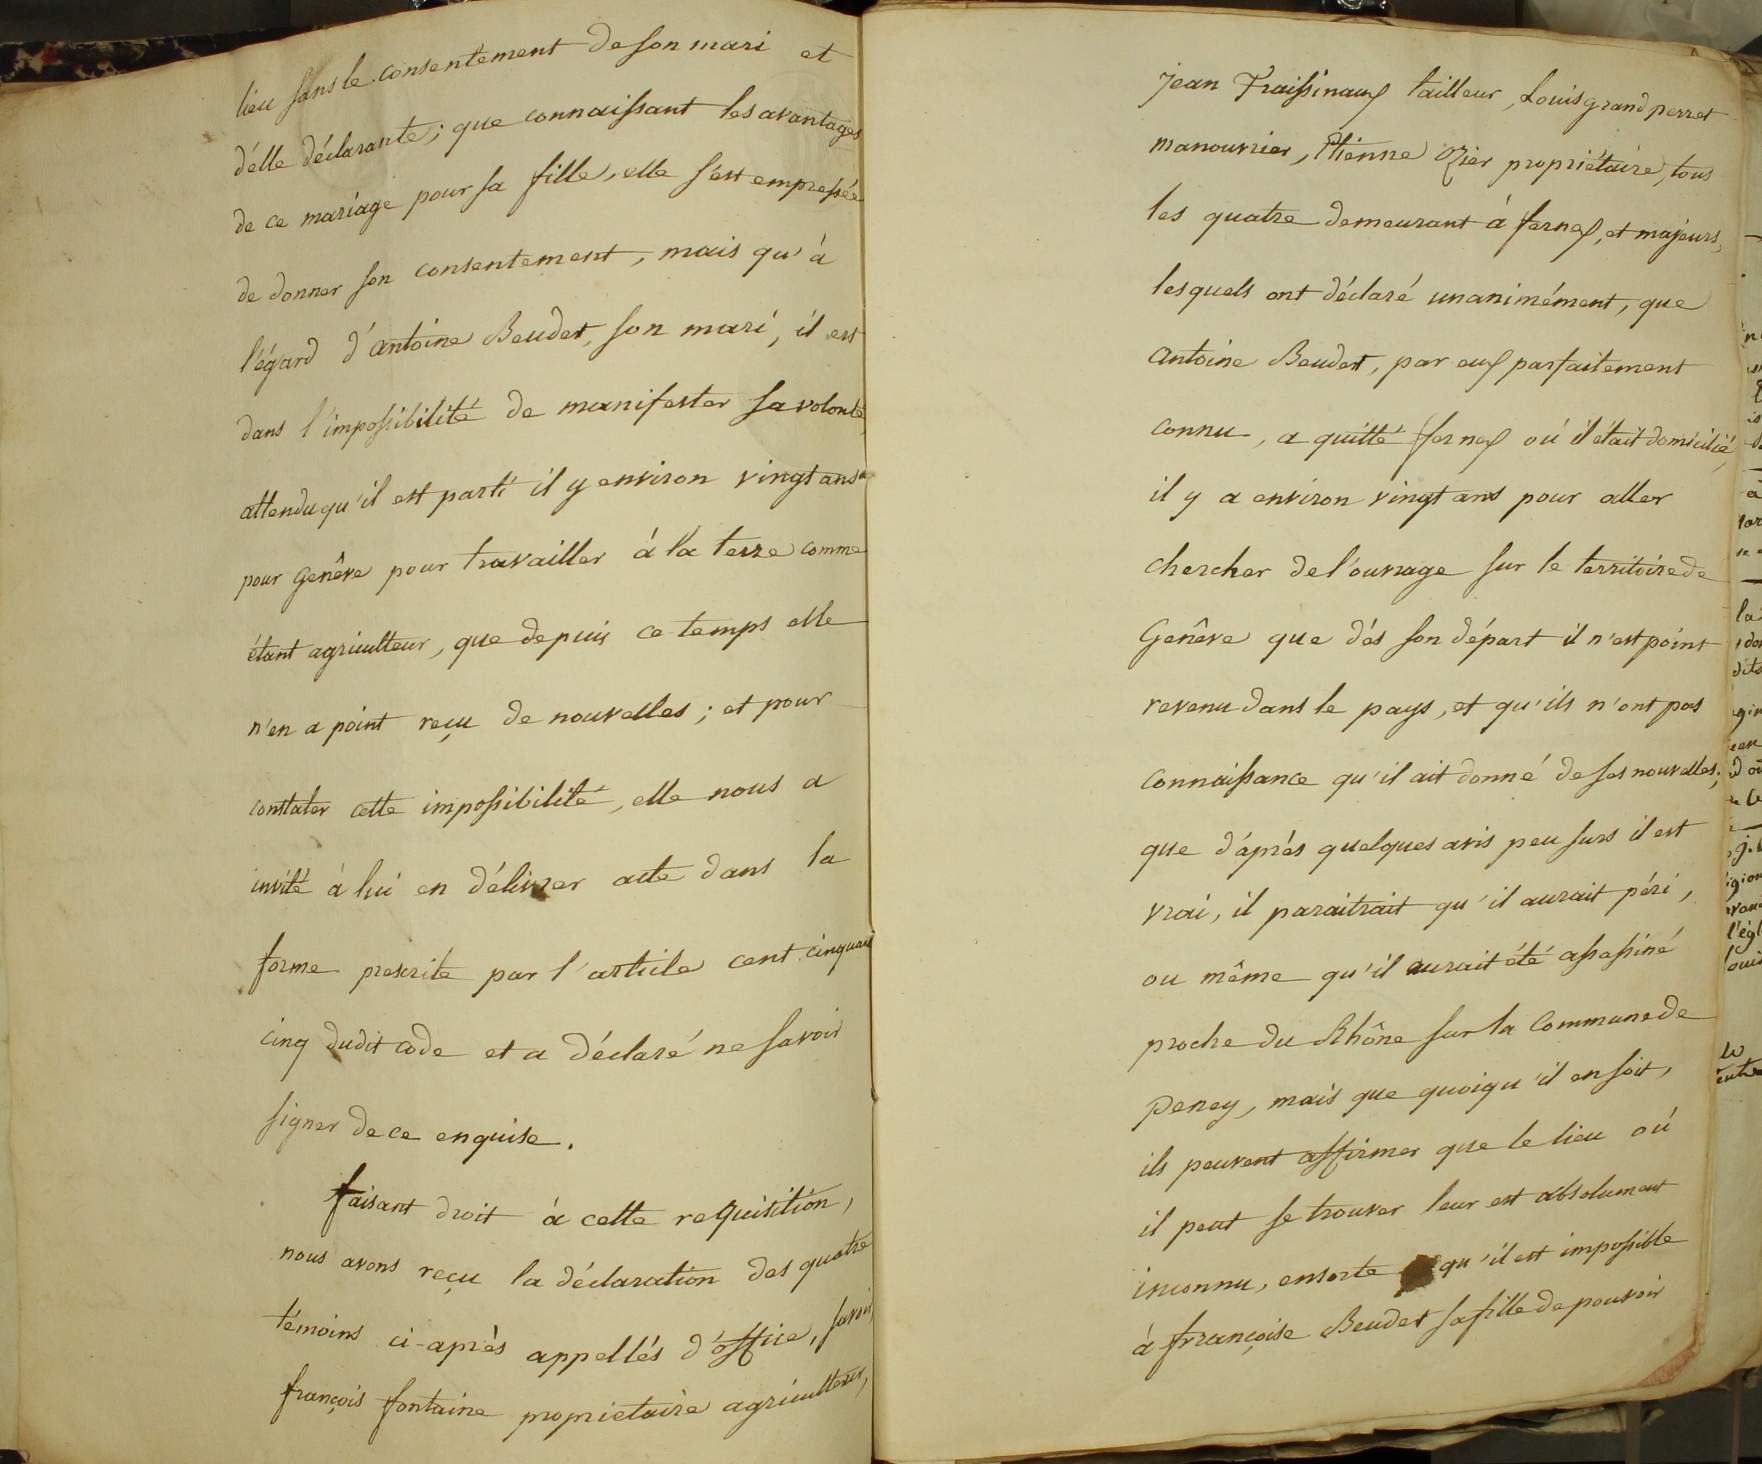 lieu sans le consentement de son mari et
d'elle déclarante; que connaissant les avantages
de ce mariage pour sa fille, elle s'est empressée
de donner son consentement, mais qu'à
l'égard d'antoine Beudet, son mari, il est
dans l'impossibilité de manifester sa volonté,
attendu qu'il est parti il y environ vingt ans
pour Genêve pour travailler à la terre comme
étant agriculteur, que depuis ce temps elle
n'en a point reçu de nouvelles; et pour
constater cette impossibilité, elle nous a
invité à lui en délivrer acte dans la
forme prescrite par l'article cent cinquante
cinq dudit code et a déclaré ne savoir
signer de ce enquise.
faisant droit à cette requisition,
nous avons reçu la déclaration des quatre
témoins ci-après appellés d'office, savoir,
françois fontaine propriétaire agriculteur,
jean Fraissinaux tailleur, Louis grandperret
manouvrier, Etienne Ozier propriétaire, tous
les quatre demeurant à fernex, et majeurs,
lesquels ont déclaré unanimément, que
antoine Beudet, par eux parfaitement
connu, a quitté fernex où il était domicilié,
il y a environ vingt ans pour aller
chercher de l'ouvrage sur le territoire de
Genêve que dés son départ il n'est point
revenu dans le pays, et qu'ils n'ont pas
connaissance qu'il ait donné de ses nouvelles;
que d'après quelques avis peu surs il est
vrai, il paraitrait qu'il aurait péri,
ou même qu'il aurait été assassiné
proche du Rhône sur la Commune de
peney, mais que quoiqu'il en soit,
ils peuvent affirmer que le lieu où
il peut se trouver leur est absolument
inconnu, ensorte qu'il est impossible
à françoise Beudet sa fille de pouvoir